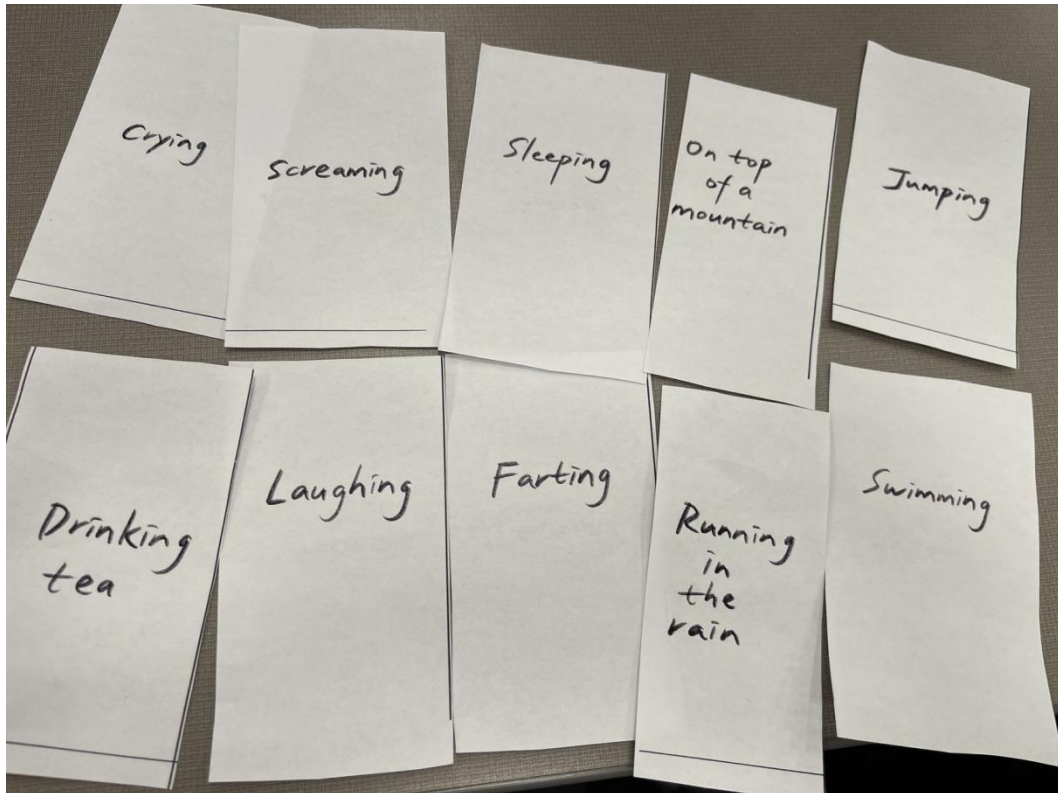 Crying
screaming
Sleeping
On top
of a
mountain
Jumping
Drinking
tea
Laughing
Farting
Running
in
the
rain
Swimming